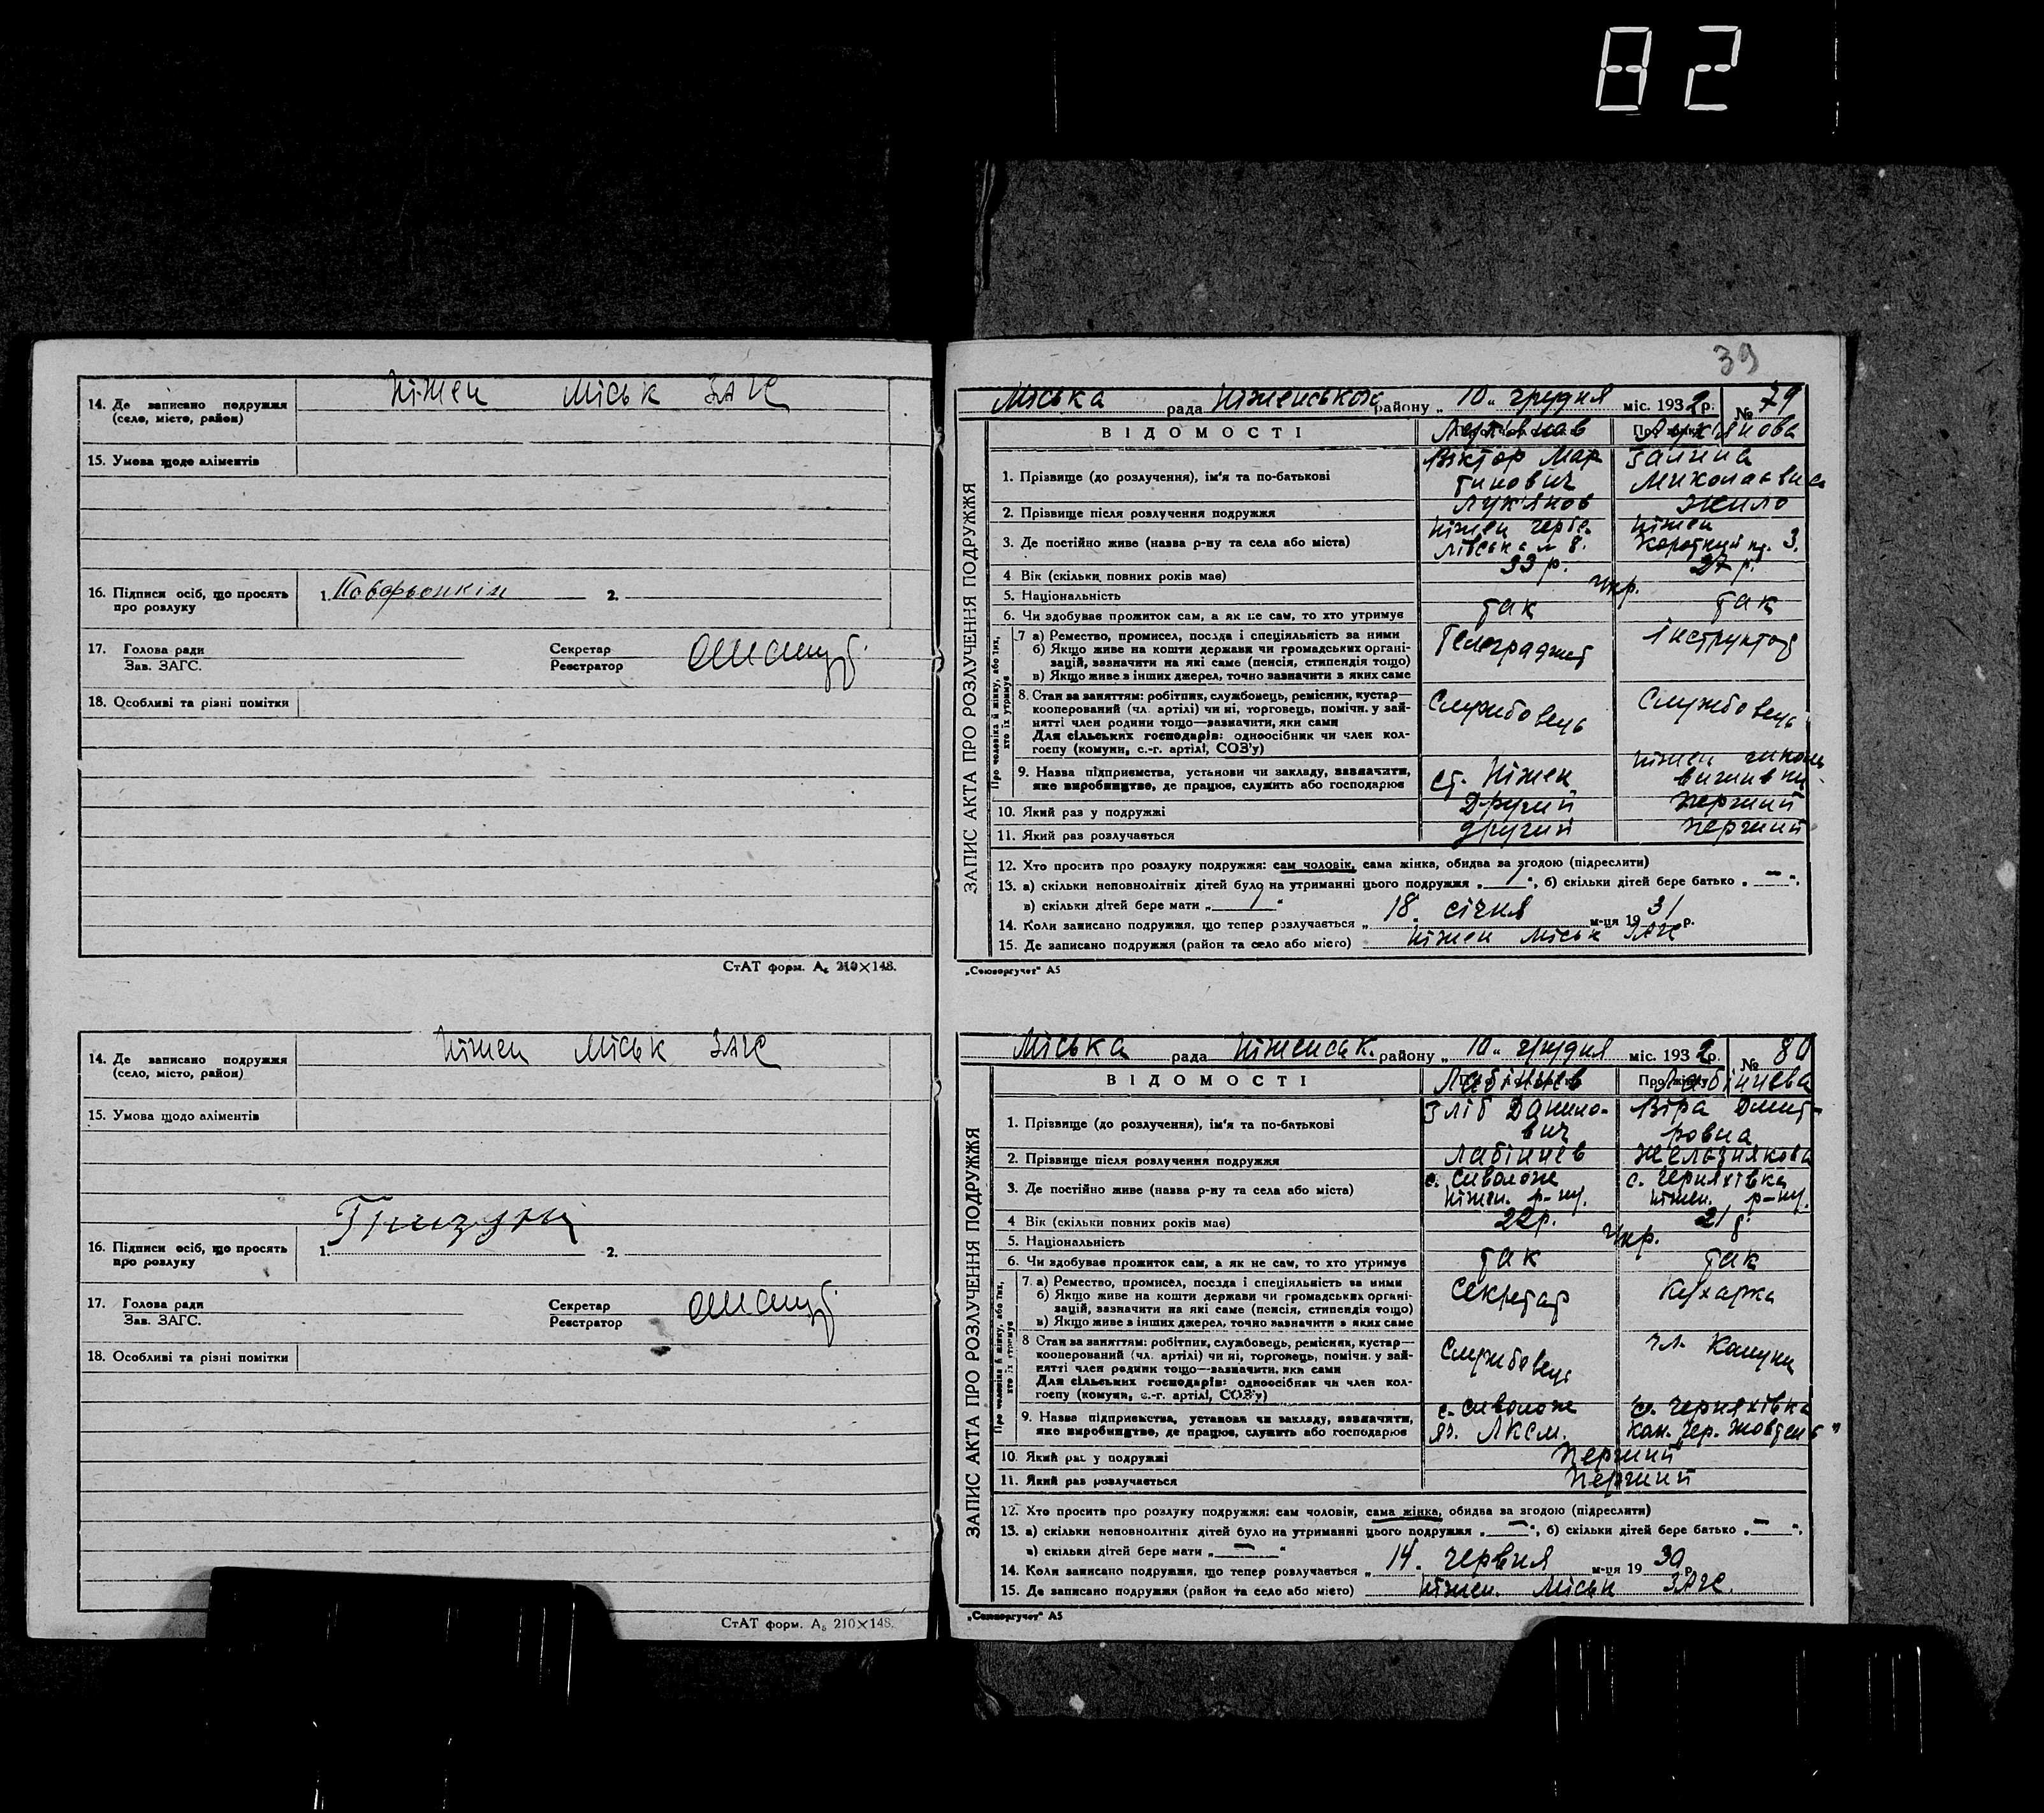 82
14. Де записано подружжя
(село, місто, район)
Ніжен Міськ ЗАГС
15. Умова щодо аліментів
16. Підписи осіб, що просять
про розлуку
1. 2.
17. Голова ради
Зав. ЗАГС.
Секретар
Реєстратор
18. Особливі та різні помітки
СтАТ форм. А₅ 210×148.
14. Де записано подружжя
(село, місто, район)
Ніжен Міськ ЗАГС
15. Умова щодо аліментів
16. Підписи осіб, що просять
про розлуку
1. 2.
17. Голова ради
Зав. ЗАГС.
Секретар
Реєстратор
18. Особливі та різні помітки
СтАТ форм. А₅ 210×148.
39
ЗАПИС АКТА ПРО РОЗЛУЧЕННЯ ПОДРУЖЖЯ
Міська рада Ніженської району „ 10 „ грудня міс. 1932 р. № 79
ВІДОМОСТІ
Лук'янов Лук'янова
1. Прізвище (до розлучення), ім'я та по-батькові
Віктор Мар Галина
тинович Миколаєвна
2. Прізвище після розлучення подружжя Лук'янов Жило
3. Де постійно живе (назва р-ну та села або міста)
Ніжен Ніжен
8. Короткий 3.
4 Вік (скільки повних років має) 33 р. 27 р.
5. Національність Укр.
6. Чи здобуває прожиток сам, а як не сам, то хто утримує так так
Про чоловіка й жінку, або тих,
хто їх утримує
7 а) Ремество, промисел, посада і спеціяльність за ними
б) Якщо живе на кошти держави чи громадських органі-
зацій, зазначити на які саме (пенсія, стипендія тощо)
в) Якщо живе з інших джерел, точно зазначити з яких саме
Телеграфист Інструктор
8. Стан за заняттям: робітник, службовець, ремісник, кустар—
кооперований (чл. артілі) чи ні, торговець, помічн. у зай-
нятті член родини тощо—зазначити, яки сами
Для сільських господарів: одноосібник чи член кол-
госпу (комуни, с.-г. артілі, СОЗ'у)
Службовець Службовець
9. Назва підприємства, установи чи закладу, зазначити,
яке виробництво, де працює, служить або господарює
ст. Ніжен Ніжен
10. Який раз у подружжі Другий Перший
11. Який раз розлучається другий Перший
12. Хто просить про розлуку подружжя: сам чоловік, сама жінка, обидва за згодою (підреслити)
13. а) скільки неповнолітніх дітей було на утриманні цього подружжя „ 1 “, б) скільки дітей бере батько „ — “,
в) скільки дітей бере мати „ 1 “
14. Коли записано подружжя, що тепер розлучається „ 18 „ січня м-ця 1931 р.
15. Де записано подружжя (район та село або місто) Ніжен Міськ ЗАГС
„Союзоргучет“ А5
ЗАПИС АКТА ПРО РОЗЛУЧЕННЯ ПОДРУЖЖЯ
Міська рада Ніженськ. району „ 10 „ грудня міс. 1932 р. № 80
ВІДОМОСТІ
Лабінцев Лабінцева
1. Прізвище (до розлучення), ім'я та по-батькові
Гліб Данило- Віра Дмит-
вич ровна
2. Прізвище після розлучення подружжя Лабінцев Желєзнякова
3. Де постійно живе (назва р-ну та села або міста)
с. Сиволож с. Черняхівка
Ніжен. р-ну. Ніжен. р-ну.
4 Вік (скільки повних років має) 22 р. 21 р.
5. Національність Укр.
6. Чи здобуває прожиток сам, а як не сам, то хто утримує так так
Про чоловіка й жінку, або тих,
хто їх утримує
7. а) Ремество, промисел, посада і спеціяльність за ними
б) Якщо живе на кошти держави чи громадських органі-
зацій, зазначити на які саме (пенсія, стипендія тощо)
в) Якщо живе з інших джерел, точно зазначити з яких саме
Секретар Кухарка
8 Стан за заняттям: робітник, службовець, ремісник, кустар—
кооперований (чл. артілі) чи ні, торговець, помічн. у зай-
нятті член родини тощо—зазначити, яки сами
Для сільських господарів: одноосібник чи член кол-
госпу (комуни, с.-г. артілі, СОЗ'у)
Службовець чл. Комуни
9. Назва підприємства, установи чи закладу, зазначити,
яке виробництво, де працює, служить або господарює
с. Сиволож с. Черняхівка
ЛКСМ. Ком. Чер. Жовтень"
10. Який раз у подружжі Перший
11. Який раз розлучається Перший
12. Хто просить про розлуку подружжя: сам чоловік, сама жінка, обидва за згодою (підреслити)
13. а) скільки неповнолітніх дітей було на утриманні цього подружжя „ — “, б) скільки дітей бере батько „ — “,
в) скільки дітей бере мати „ — “
14. Коли записано подружжя, що тепер розлучається „ 14 „ червня м-ця 1930 р.
15. Де записано подружжя (район та село або місто) Ніжен. Міськ ЗАГС.
„Союзоргучет“ А5